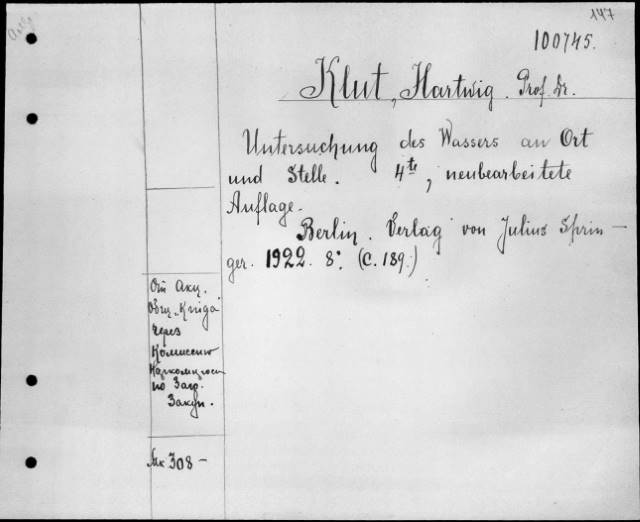 147
100745.
Klut, Hartwig. Prof. Dr.
Untersuchung des Wassers an Ort
und Stelle. 4te, neubearbeitete
Auflage.
Berlin. Verlag von Julius Sprin-
ger. 1922. 8°. (С. 189.)
От Акц.
Общ. "Kniga"
через
Комиссию
по Загр.
Закуп.
Mk 308-